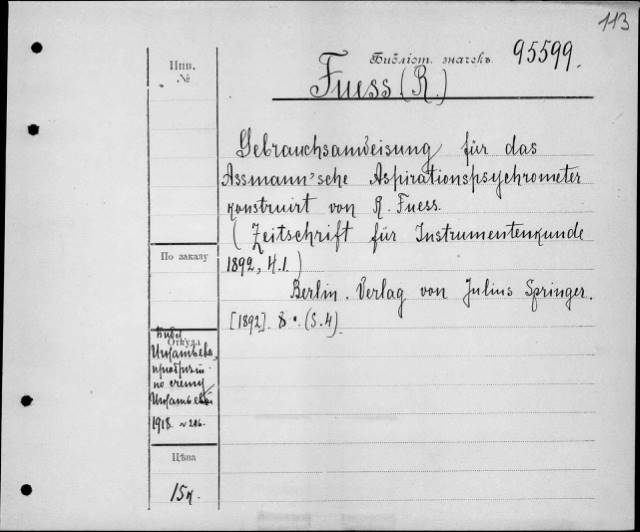 113
Библіот. значекъ 95599.
Fuess (R.)
Инв.
№
Gebrauchsanweisung für das
Assmann'sche Aspirationspsychrometer
konstruirt von R. Fuess.
(Zeitschrift für Instrumentenkunde
1892, H.1.)
Berlin. Verlag von Julius Springer.
[1892]. 8°. (S.4).
По заказу
Откуда
по счету
1918 № 286.
Цѣна
15к.